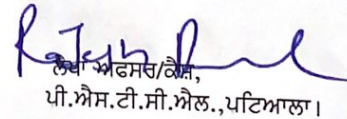 ਲੇਖਾ ਅਫਸਰ/ਕੈਸ਼,
ਪੀ.ਐਸ.ਟੀ.ਸੀ.ਐਲ.,ਪਟਿਆਲਾ।